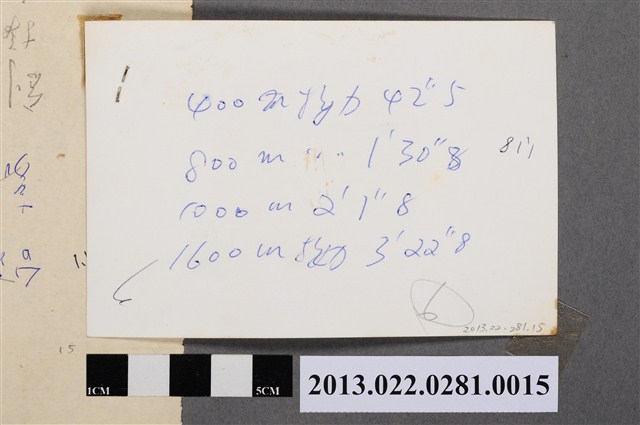 400m接力 42"5
800m 〃 〃 1'30"8
811
1000m 2'1"8
1600m接力 3'22"8
6
2013.22-281.15
15
1CM 5CM
2013.022.0281.0015